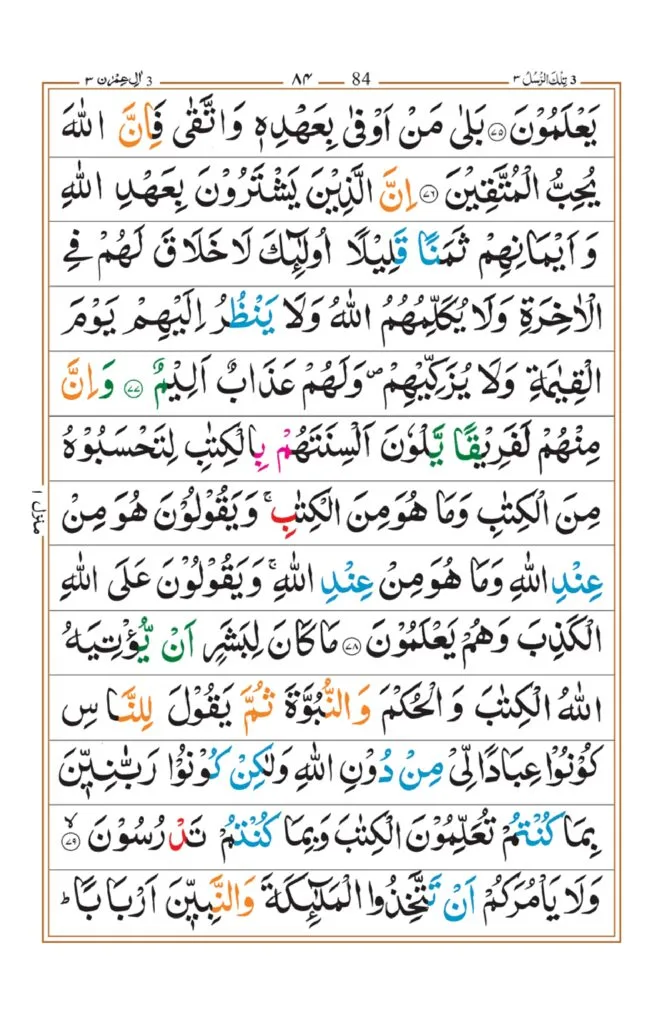 3 تِلْكَ الرُّسُلُ ٣
84 ٨٤
3 اٰلِ عِمْرٰن ٣
يَعْلَمُوْنَ ﴿٧٥﴾ بَلٰى مَنْ اَوْفٰى بِعَهْدِهٖ وَاتَّقٰى فَاِنَّ اللّٰهَ
يُحِبُّ الْمُتَّقِيْنَ ﴿٧٦﴾ اِنَّ الَّذِيْنَ يَشْتَرُوْنَ بِعَهْدِ اللّٰهِ
وَاَيْمَانِهِمْ ثَمَنًا قَلِيْلًا اُولٰٓئِكَ لَا خَلَاقَ لَهُمْ فِي
الْاٰخِرَةِ وَلَا يُكَلِّمُهُمُ اللّٰهُ وَلَا يَنْظُرُ اِلَيْهِمْ يَوْمَ
الْقِيٰمَةِ وَلَا يُزَكِّيْهِمْ ۪ وَلَهُمْ عَذَابٌ اَلِيْمٌ ﴿٧٧﴾ وَاِنَّ
مِنْهُمْ لَفَرِيْقًا يَّلْوٗنَ اَلْسِنَتَهُمْ بِالْكِتٰبِ لِتَحْسَبُوْهُ
مِنَ الْكِتٰبِ وَمَا هُوَ مِنَ الْكِتٰبِ ۚ وَيَقُوْلُوْنَ هُوَ مِنْ
عِنْدِ اللّٰهِ وَمَا هُوَ مِنْ عِنْدِ اللّٰهِ ۚ وَيَقُوْلُوْنَ عَلَى اللّٰهِ
الْكَذِبَ وَهُمْ يَعْلَمُوْنَ ﴿٧٨﴾ مَا كَانَ لِبَشَرٍ اَنْ يُّؤْتِيَهُ
اللّٰهُ الْكِتٰبَ وَالْحُكْمَ وَالنُّبُوَّةَ ثُمَّ يَقُوْلَ لِلنَّاسِ
كُوْنُوْا عِبَادًا لِّيْ مِنْ دُوْنِ اللّٰهِ وَلٰكِنْ كُوْنُوْا رَبّٰنِيّٖنَ
بِمَا كُنْتُمْ تُعَلِّمُوْنَ الْكِتٰبَ وَبِمَا كُنْتُمْ تَدْرُسُوْنَ ﴿٧٩﴾ ۙ
وَلَا يَاْمُرَكُمْ اَنْ تَتَّخِذُوا الْمَلٰٓئِكَةَ وَالنَّبِيّٖنَ اَرْبَابًا ؕ
منزل ١